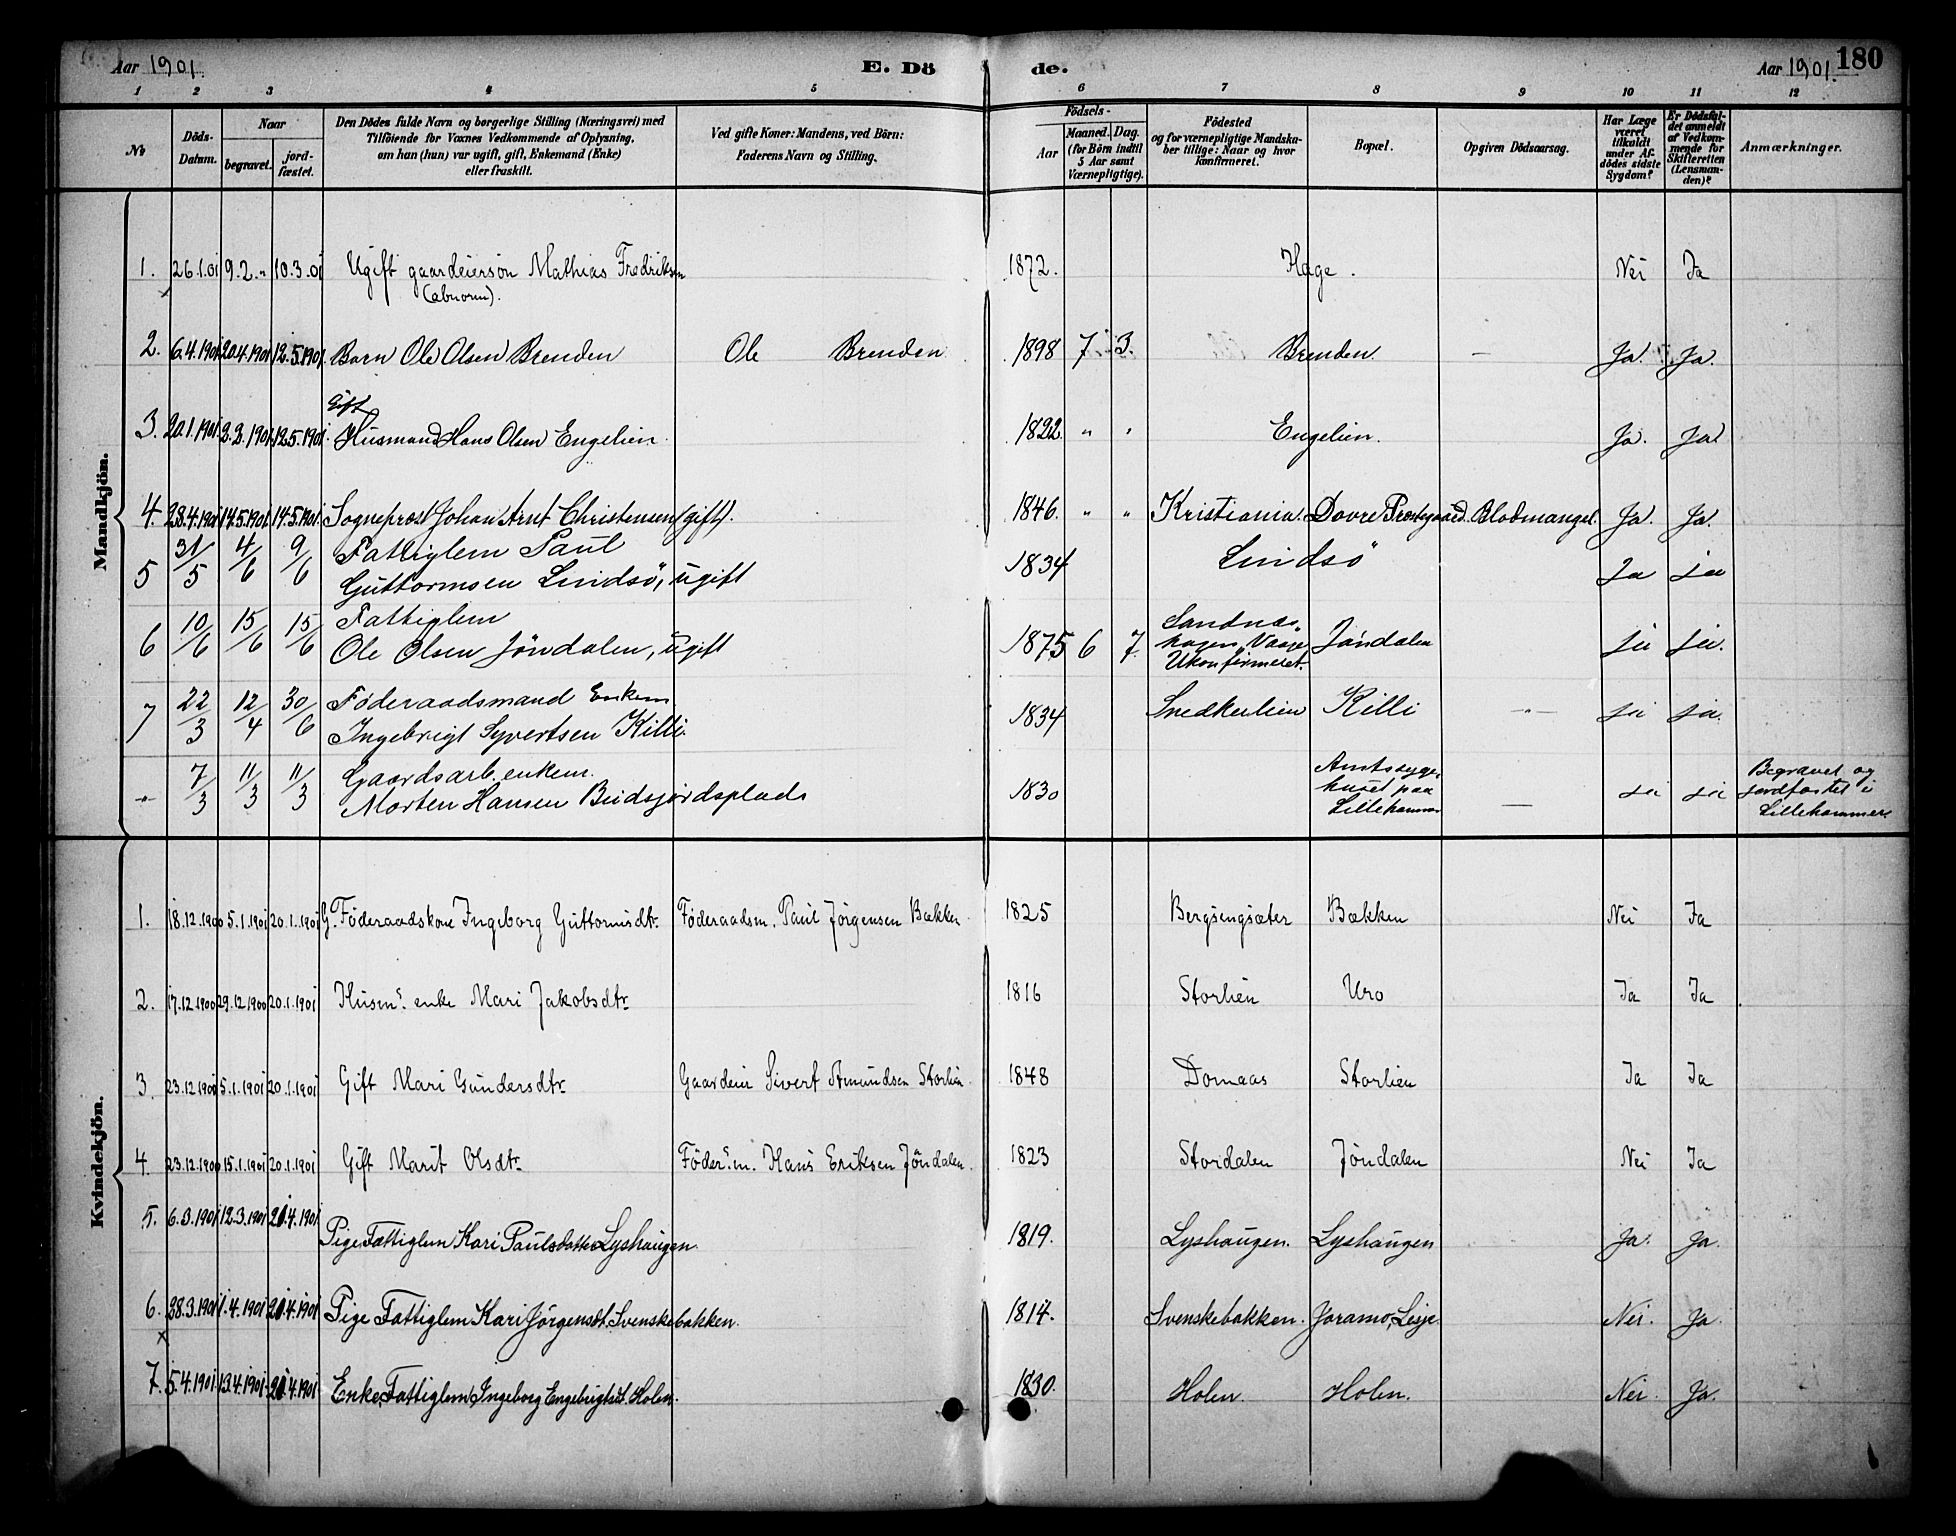 Aar 1901
E. Dö de.
Aar 1901.
180
1 2 3 4 5 6 7 8 9 10 11 12
No
Döds-Datum.
Naar
begravet.
jord-fæstet.
Den Dödes fulde Navn og borgerlige Stilling (Næringsvei) med
Tilföiende for Voxnes Vedkommende af Oplysning,
om han (hun) var ugift, gift, Enkemand (Enke)
eller fraskilt.
Ved gifte Koner: Mandens, ved Börn:
Faderens Navn og Stilling.
Födsels-
Aar
Maaned. Dag.
(for Börn indtil
5 Aar samt
Værnepligtige).
Födested
og for værnepligtige Mandska-
ber tillige: Naar og hvor
konfirmeret.
Bopæl.
Opgiven Dödsaarsag.
Har Læge
været
tilkaldt
under Af-
dödes sidste
Sygdom?
Er Dödsfal-
det anmeldt
af Vedkom-
mende for
Skifteretten
(Lensman-
den)?
Anmærkninger.
Mandkjön.
1. 26.1.01 9.2.„ 10.3.01 Ugift gaardeiersön Mathias Fredriksen 1872. Hage. Nei Ja
(abnorm).
2. 6.4.1901 20.4.1901 12.5.1901. Barn Ole Olsen Brenden Ole Brenden 1898 7 3. Brenden. — Ja. Ja.
Gift
3. 20.1.1901 2.2.1901 12.5.1901. Husmand Hans Olsen Engelien. 1822. „ „ Engelien. Ja. Ja
4. 28.4.1901 14.5.1901 14.5.1901. Sogneprest Johan Arnt Christensen (gift). 1846. „ „ Kristiania. Dovre Prestegaard. Blodmangel. Ja. Ja.
5 31/5 4/6 9/6 Fattiglem Paul
Guttormsen Lindsö, ugift 1834 Lindsö Ja ja
6 10/6 15/6 15/6 Fattiglem
Ole Olsen Jöndalen, ugift 1875 6 7. Sandnes
hagen, Vaage
Ukonfirmeret. Jöndalen ja ja.
7 22/3 12/4 30/6 Føderaadsmand Enkem
Ingebrigt Syvertsen Killi. 1834 Snedkerlien Killi —„— ja ja.
„ 7/3 11/3 11/3 Gaardsarb. enkem.
Morten Hansen Budsjordsplads 1830 Amtssyge-
huset paa
Lillehammer — ja ja Begravet og
jordfæstet i
Lillehammer.
Kvindekjön.
1. 18.12.1900 5.1.1901 20.1.1901 G. Föderaadskone Ingeborg Guttormsdtr. Föderaadsm. Paul Jörgensen Bækken 1825 Bergsengsæter Bækken Nei Ja
2. 17.12.1900 29.12.1900 20.1.1901 Husms. enke Mari Jakobsdtr. 1816 Storlien Uro Ja Ja
3. 23.12.1900 5.1.1901 20.1.1901 Gift Mari Gundersdtr. Gaardeier Sivert Amundsen Storlien. 1848 Domaas Storlien Ja Ja
4. 23.12.1900 15.1.1901 20.1.1901 Gift Marit Olsdtr. Föders.m. Hans Eriksen Jöndalen. 1823 Stordalen Jöndalen Nei Ja
5. 6.3.1901 12.3.1901 21.4.1901 Pige Fattiglem Kari Paulsdatter Lyshaugen. 1819. Lyshaugen. Lyshaugen Ja. Ja.
6. 28.3.1901 1.4.1901 21.4.1901 Pige Fattiglem Kari Jörgensdt. Svenskebakken. 1814. Svenskebakken. Joramo, Lesje Nei. Ja.
7. 5.4.1901 13.4.1901 21.4.1901 Enke, Fattiglem, Ingeborg Engebrigtsdt. Holen. 1830. Holen. Holen. Nei. Ja.